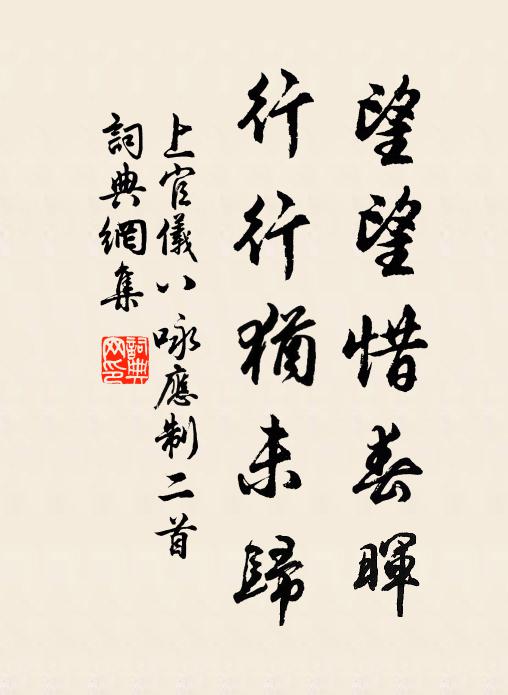 望望惜春暉
行行猶未歸
上官儀八咏應制二首
詞典網集
詞典網印